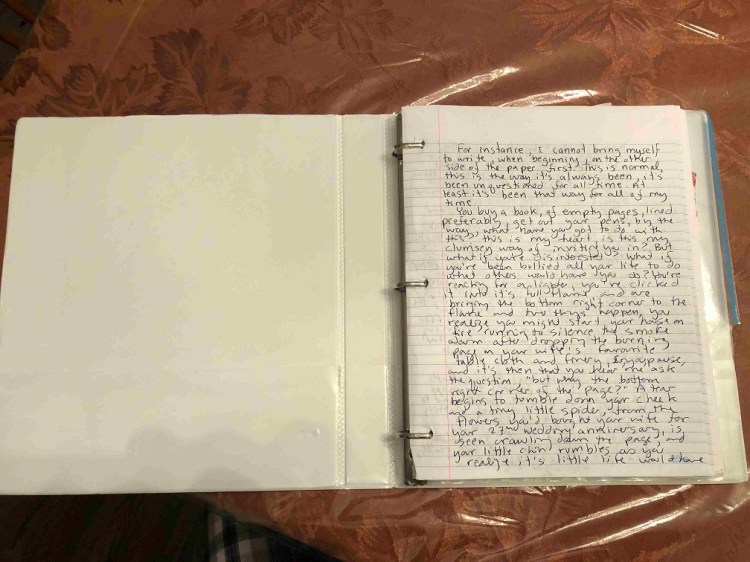 For instance, I cannot bring myself
to write, when beginning, on the other
side of the paper first. This is normal,
this is the way it's always been, it's
been unquestioned for all time. At
least it's been that way for all of my
time.
You buy a book, of empty pages, lined
preferably, get out your pens, by the
way, what have you got to do with
this, this is my heart is this my
clumsey way of inviting you in? But
what if you're disintrested? what if
you're been bullied all your life to do
what others would have you do? You're
reaching for a lighter, you're clicked
it into it's full flame and are
bringing the bottom right corner to the
flame and two things happen, you
realize you might start your house on
fire running to silence the smoke
alarm after dropping the burning
page on your wife's favourite
table cloth and finery you pause,
and it's then that you hear me ask
the question, "but why the bottom
right corner of the page?" A tear
begins to tumble down your cheek
and a tiny little spider, from the
flowers you'd bought your wife for
your 27nd wedding anniversary is
seen crawling down the page, and
your little chin rumbles as you
realize it's little life would have